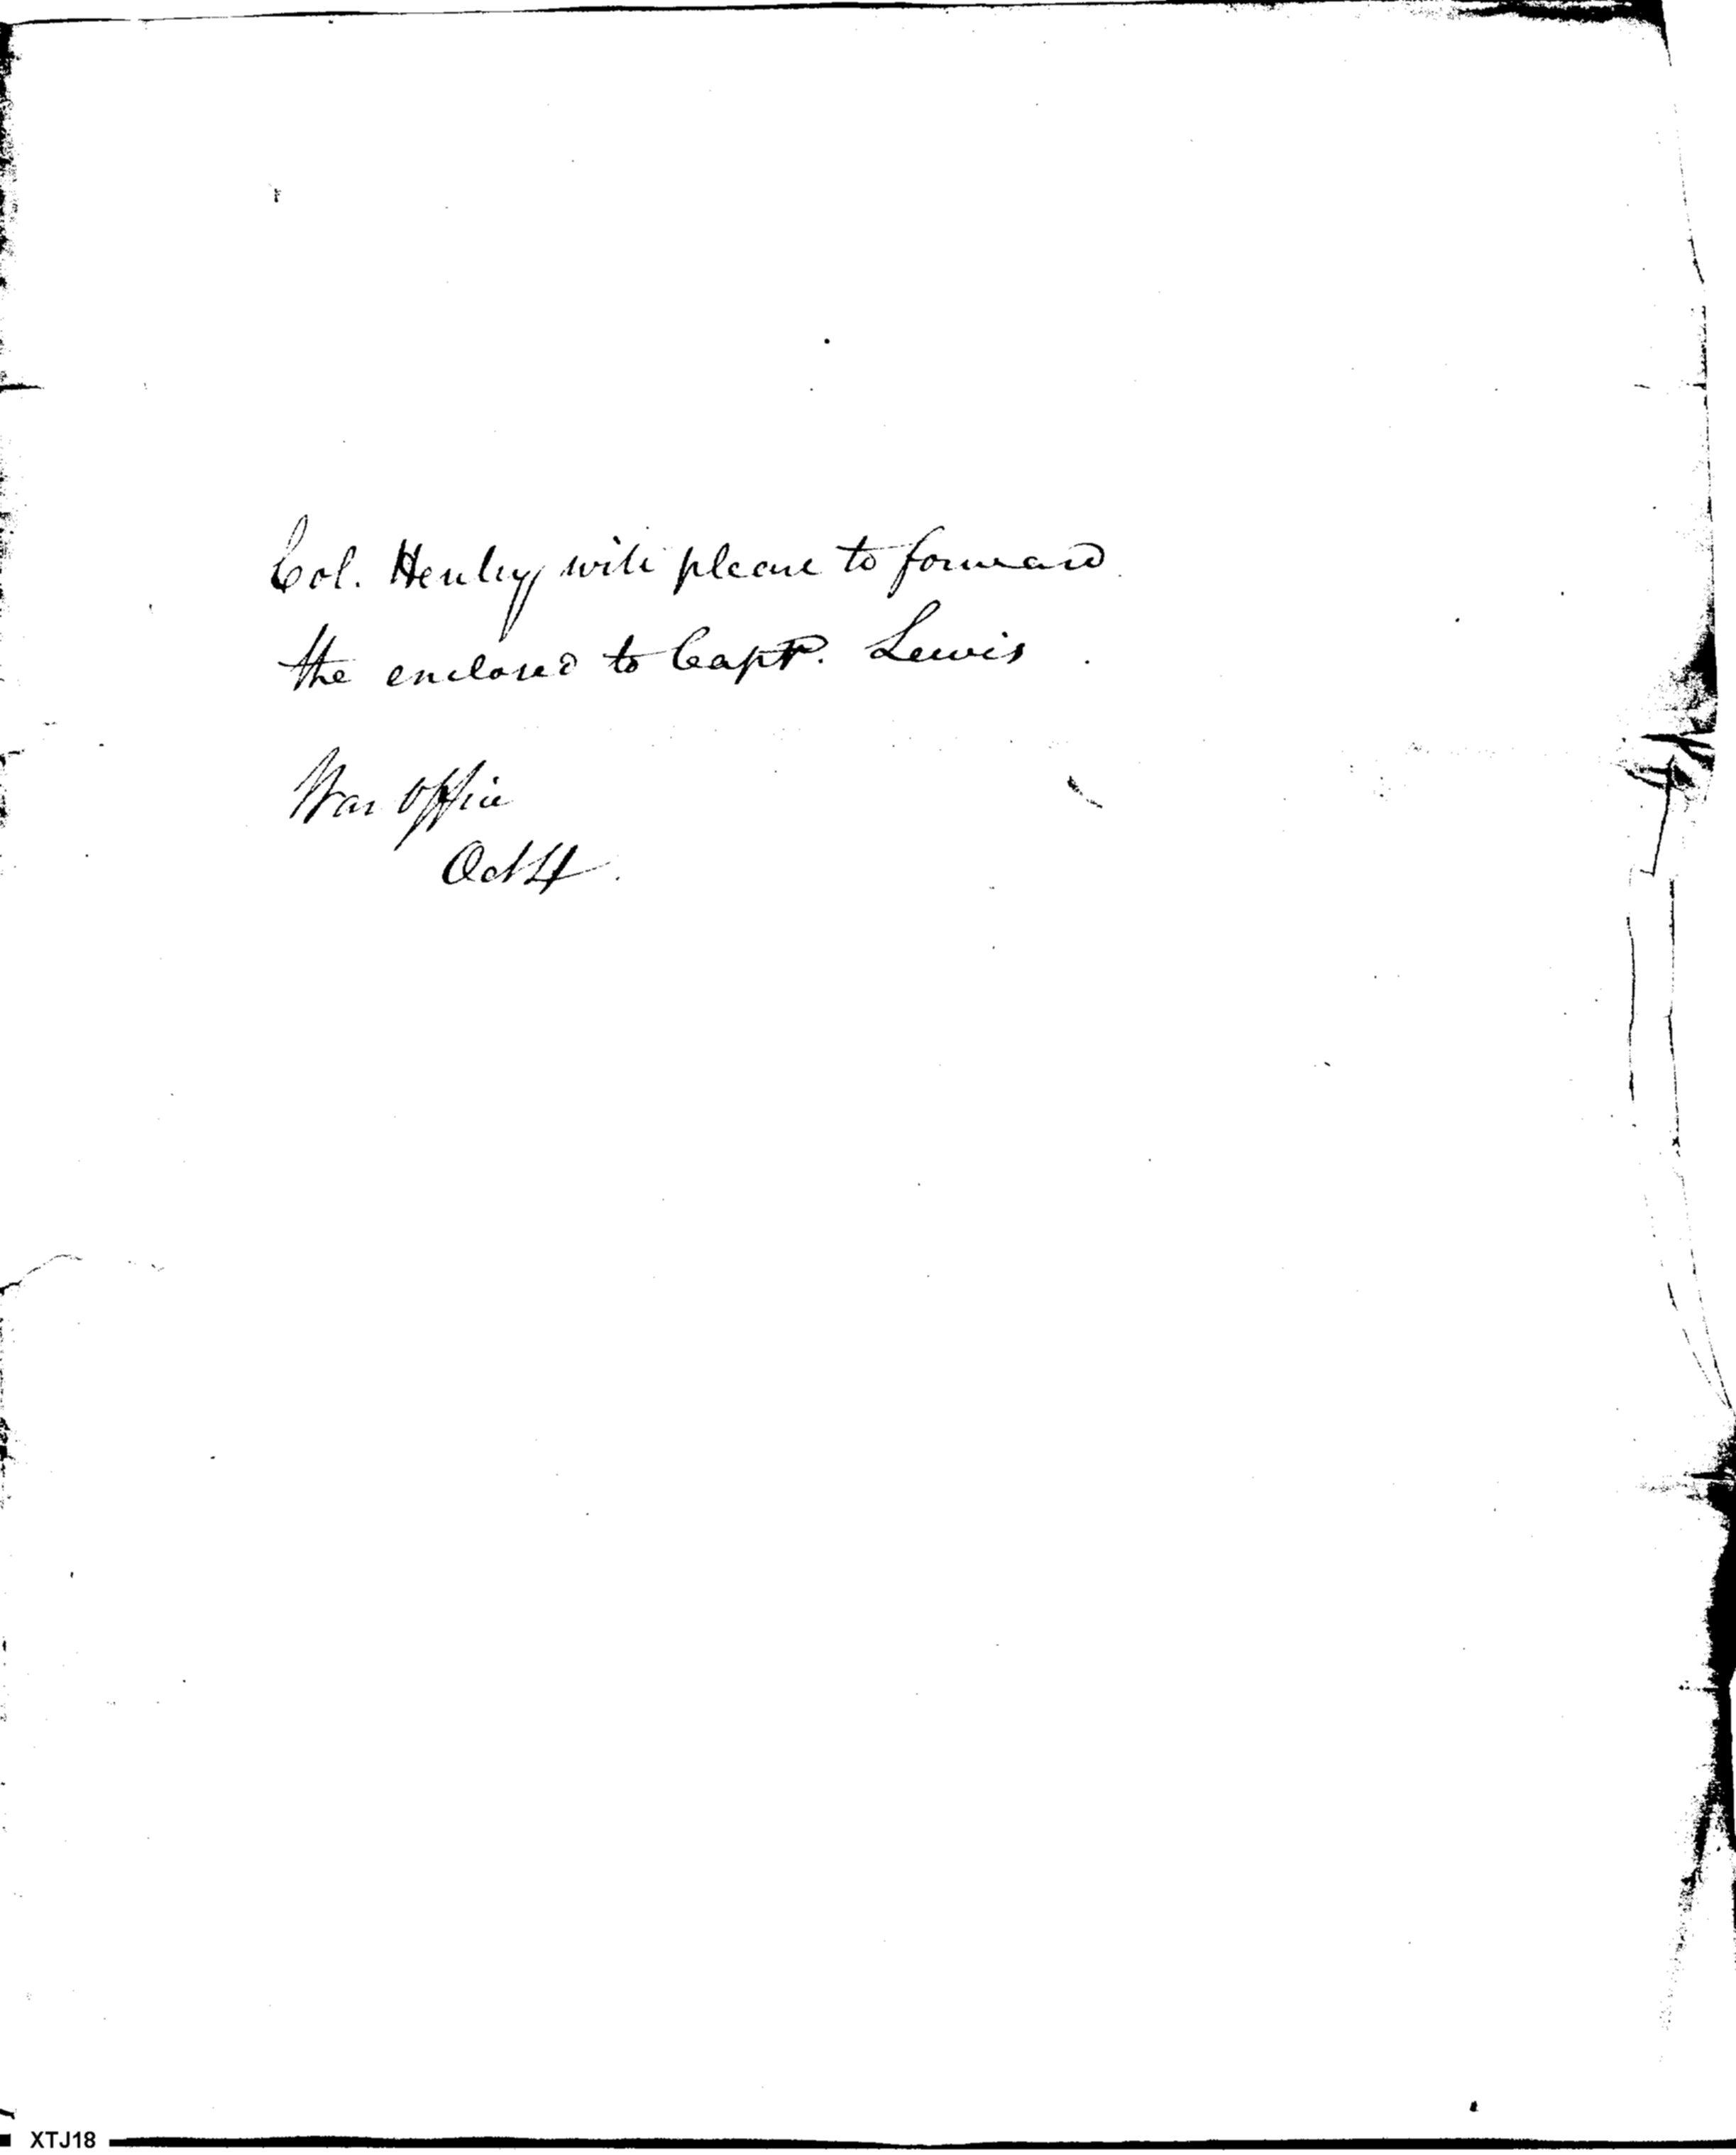 Col. Henley will please to forward
the enclosed to Capt. Lewis
War Office
Oct 4.
XTJ18